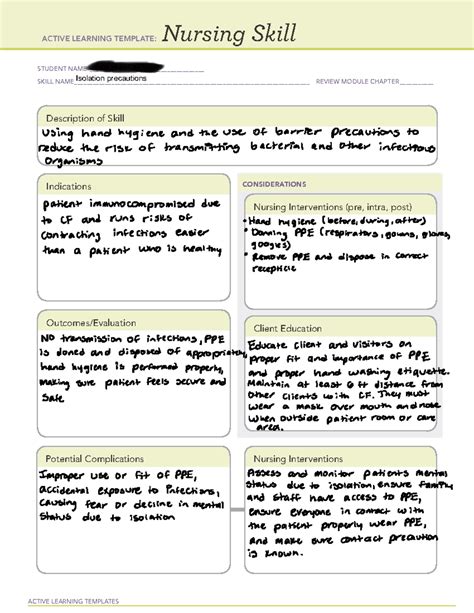 ACTIVE LEARNING TEMPLATE: Nursing Skill
STUDENT NAME
SKILL NAME Isolation precautions REVIEW MODULE CHAPTER
Description of Skill
Using hand hygiene and the use of barrier precautions to
reduce the risk of transmitting bacterial and other infectious
organisms
Indications
patient immunocompromised due
to CF and runs risks of
contracting infections easier
than a patient who is healthy
CONSIDERATIONS
Nursing Interventions (pre, intra, post)
• Hand hygiene (before, during, after)
• Donning PPE (respirators, gowns, gloves,
googles)
• Remove PPE and dispose in correct
recepticle
Outcomes/Evaluation
NO transmission of infections, PPE
is doned and disposed of appropriately,
hand hygiene is performed properly,
making sure patient feels secure and
safe
Client Education
Educate client and visitors on
proper fit and importance of PPE
and proper hand washing etiquette.
Maintain at least 6 ft distance from
other clients with CF. They must
wear a mask over mouth and nose
when outside patient room or care
area.
Potential Complications
Improper use or fit of PPE,
accidental exposure to infections,
causing fear or decline in mental
status due to isolation
Nursing Interventions
Assess and monitor patients mental
status due to isolation, ensure family
and staff have access to PPE,
ensure everyone in contact with
the patient properly wear PPE,
and make sure contact precaution
is known.
ACTIVE LEARNING TEMPLATES